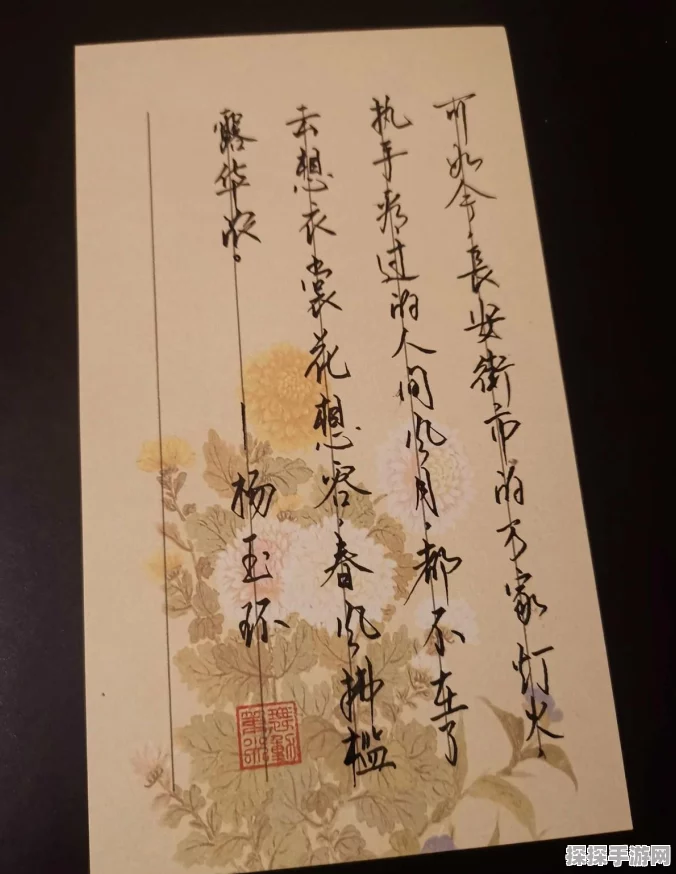 可如今，長安街市的万家灯火，
执手看过的人间风月，都不在了
云想衣裳花想容，春风拂槛
露华浓。
—杨玉环
探探手游网